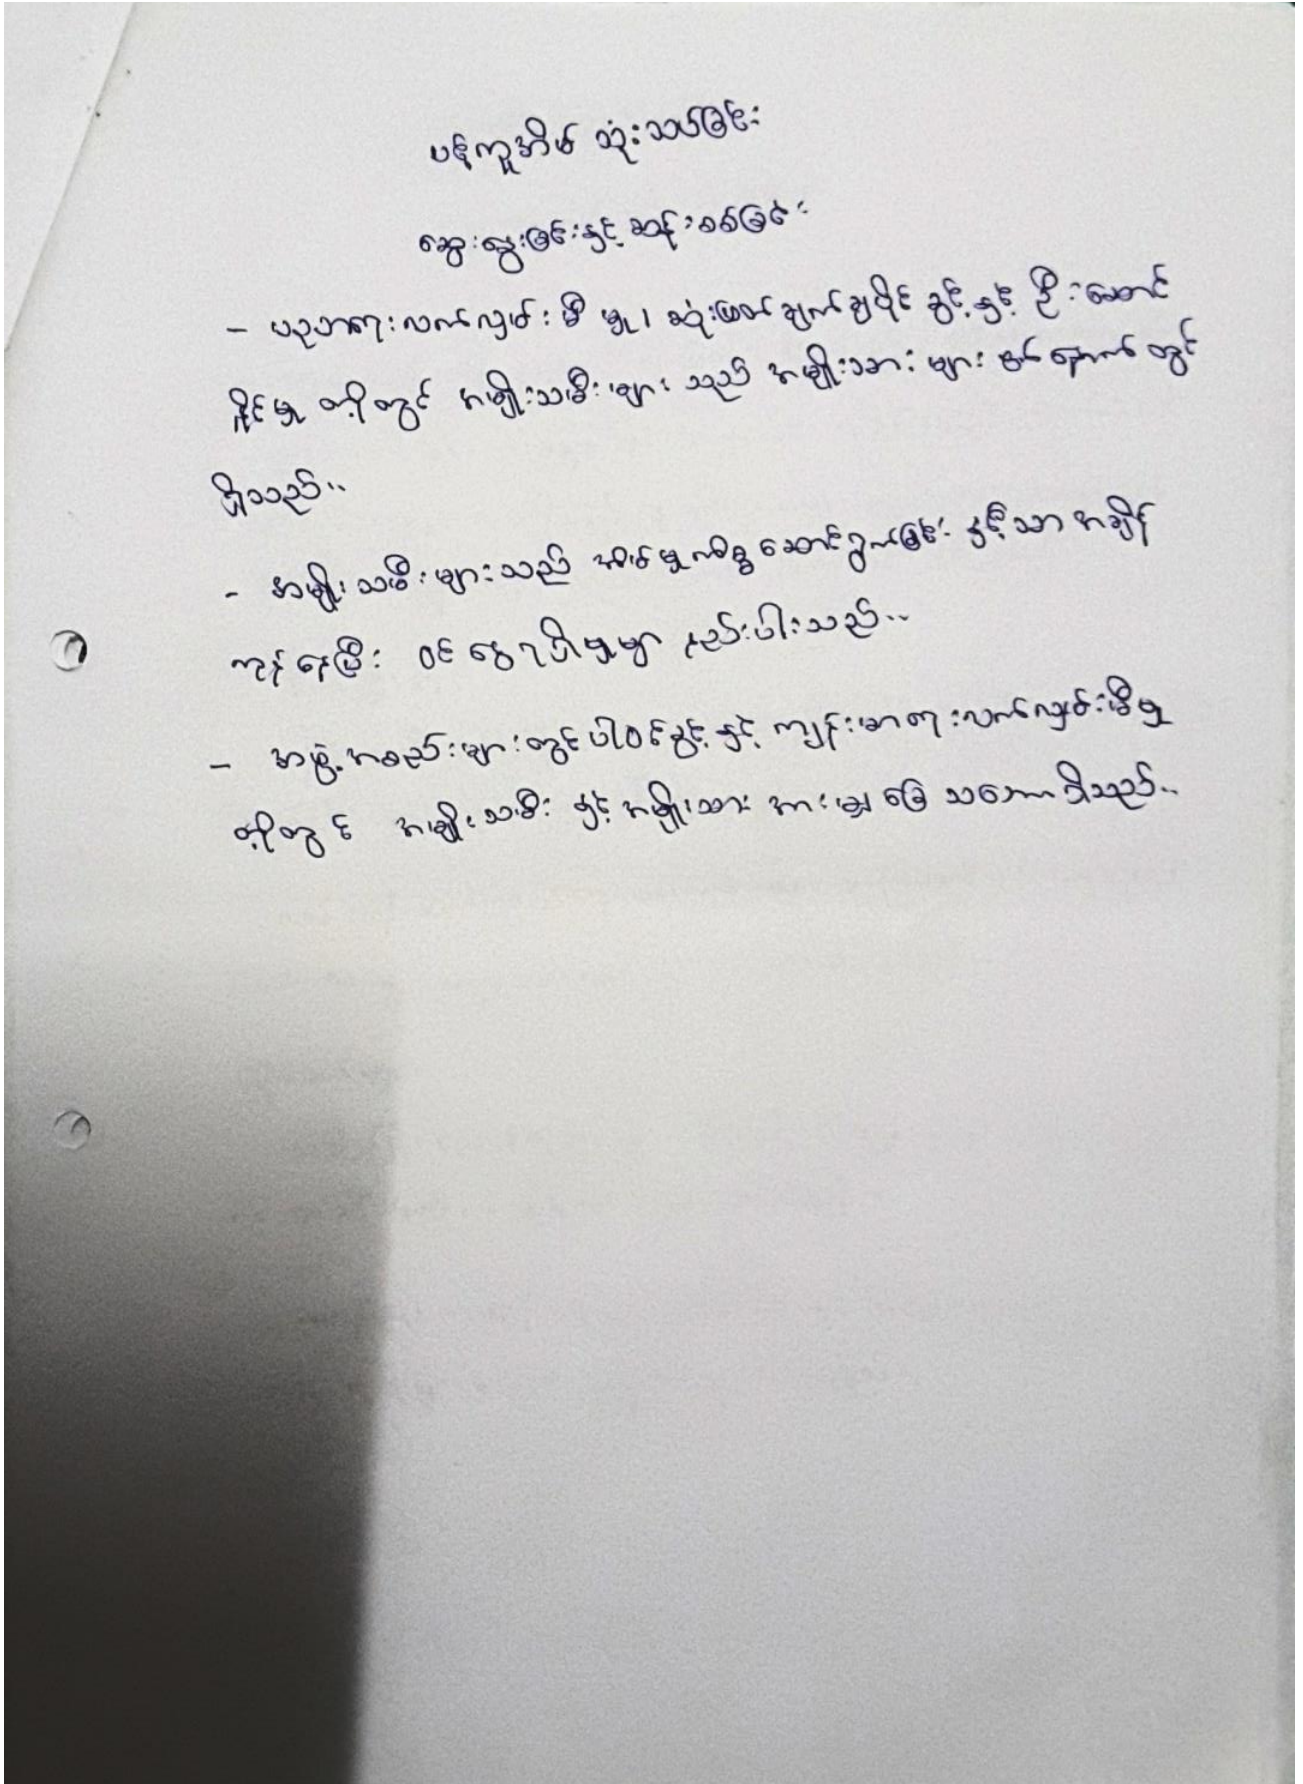 ပန်ကူအိမ် သုံးသပ်ခြင်း
ဆွေးနွေးခြင်းနှင့် ဆန်းစစ်ခြင်း
- ပညာရေးလက်လှမ်းမီ မှု၊ ဆုံးဖြတ်ချက်ချပိုင် ခွင့်နှင့် ဦးဆောင်
နိုင်မှု တို့တွင် အမျိုးသမီးများ သည် အမျိုးသား များ နောက်တွင်
ရှိသည်။
- အမျိုးသမီးများသည် အိမ်မှုကိစ္စဆောင်ရွက်ခြင်း နှင့်သာ အချိန်
ကုန်နေပြီး ဝင်ငွေရရှိမှုမှာ နည်းပါးသည်။
- အဖွဲ့အစည်းများတွင်ပါဝင်ခွင့်နှင့် ကျန်းမာရေးလက်လှမ်းမီမှု
တို့တွင် အမျိုးသမီး နှင့်အမျိုးသား အားမျှခြေ သဘောရှိသည်။